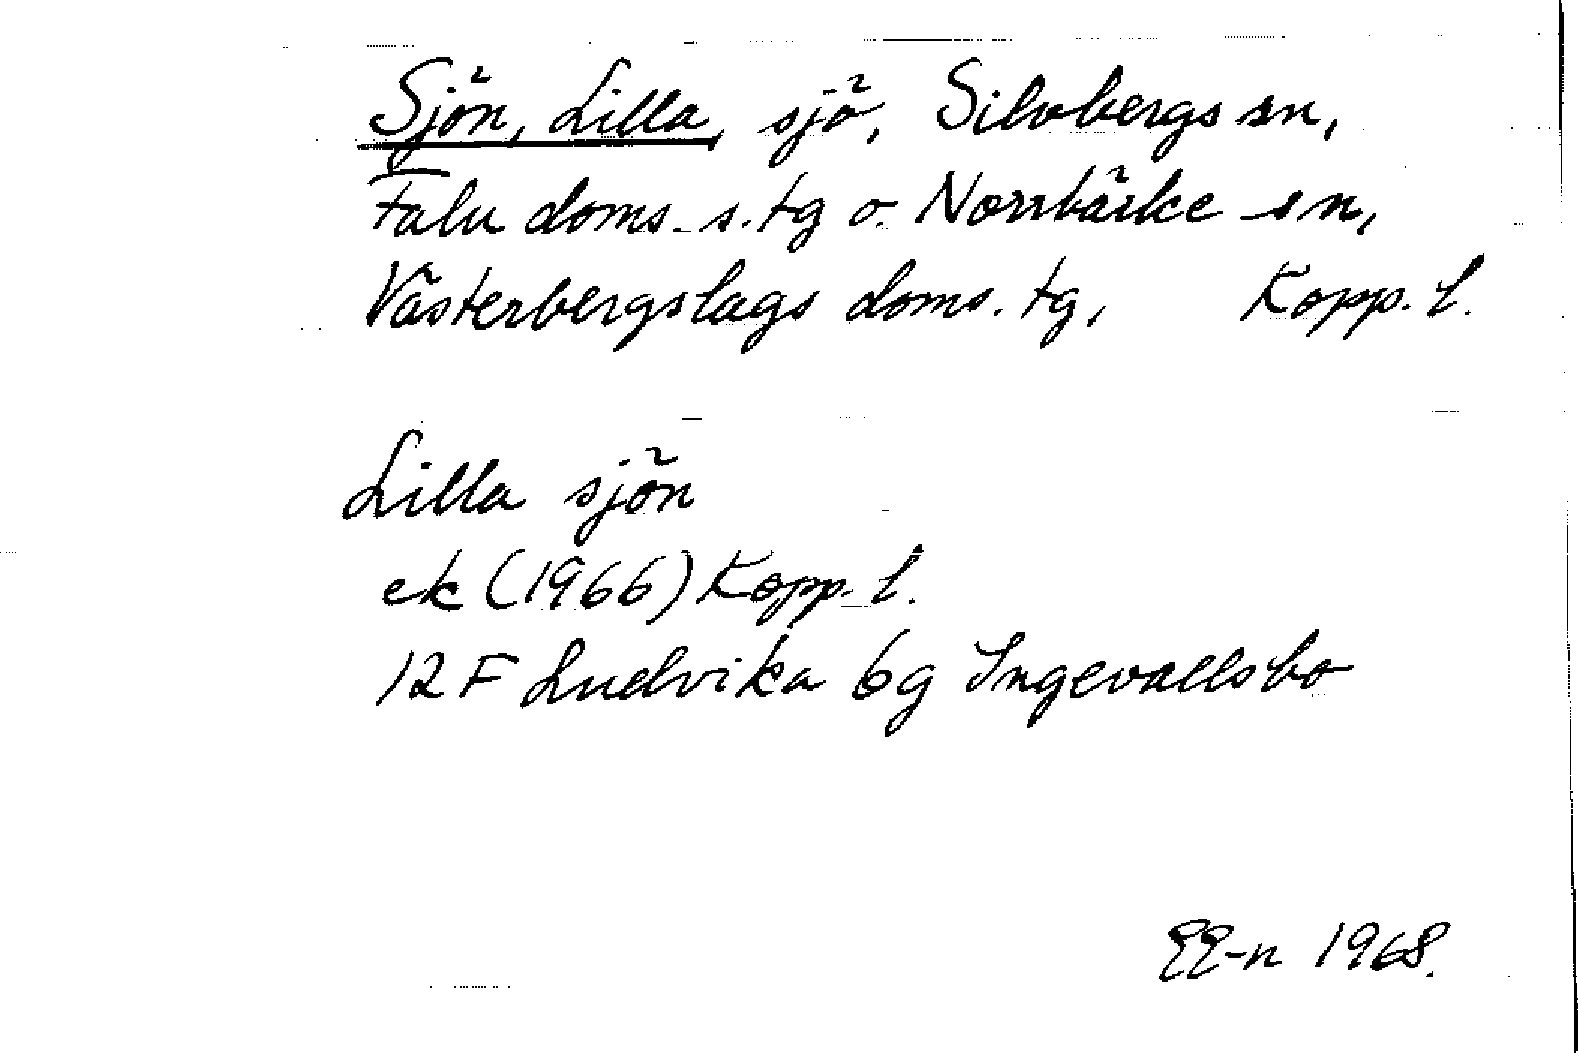 Sjön, Lilla, sjö, Silvbergs sn,
Falu doms. s. tg o. Norrbärke sn,
Västerbergslags doms. tg, Kopp. l.
Lilla sjön
ek (1966) Kopp. l.
12 F Ludvika 6g Ingevallsbo
EE-n 1968.